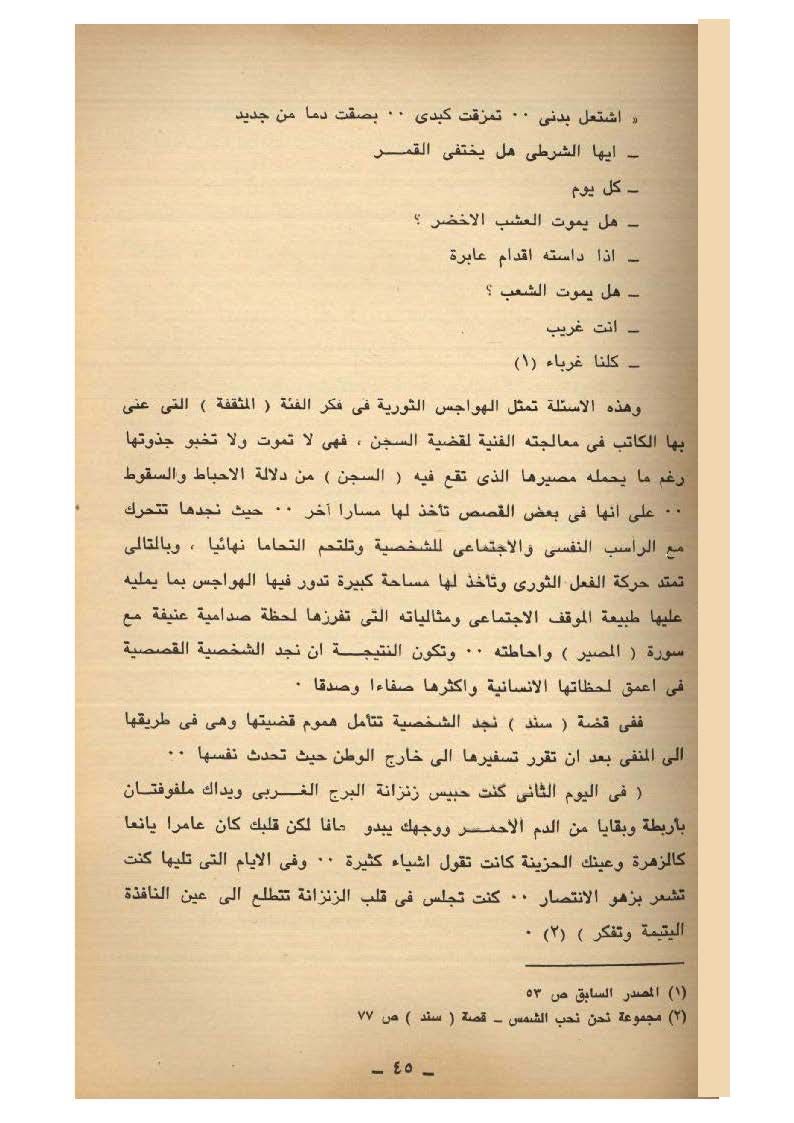 « اشتعل بدنى ٠٠ تمزقت كبدى ٠٠ بصقت دما من جديد
ـ ايها الشرطى هل يختفى القمـــر
ـ كل يوم
ـ هل يموت العشب الاخضر ؟
ـ اذا داسته اقدام عابرة
ـ هل يموت الشعب ؟
ـ انت غريب
ـ كلنا غرباء (١)
وهذه الاسئلة تمثل الهواجس الثورية فى فكر الفئة ( المثقفة ) التى عنى
بها الكاتب فى معالجته الفنية لقضية السجن ، فهى لا تموت ولا تخبو جذوتها
رغم ما يحمله مصيرها الذى تقع فيه ( السجن ) من دلالة الاحباط والسقوط
٠٠ على أنها فى بعض القصص تأخذ لها مسارا آخر ٠٠ حيث نجدها تتحرك
مع الراسب النفسى والاجتماعى للشخصية وتلتحم التحاما نهائيا ، وبالتالى
تمتد حركة الفعل الثورى وتأخذ لها مساحة كبيرة تدور فيها الهواجس بما يمليه
عليها طبيعة الموقف الاجتماعى ومثالياته التى تفرزها لحظة صدامية عنيفة مع
سورة ( المصير ) واحاطته ٠٠ وتكون النتيجـــة ان نجد الشخصية القصصية
فى اعمق لحظاتها الانسانية واكثرها صفاءا وصدقا ٠
ففى قصة ( سند ) نجد الشخصية تتأمل هموم قضيتها وهى فى طريقها
الى المنفى بعد ان تقرر تسفيرها الى خارج الوطن حيث تحدث نفسها ٠٠
( فى اليوم الثانى كنت حبيس زنزانة البرج الغـــربى ويداك ملفوفتـــان
بأربطة وبقايا من الدم الأحمـــر ووجهك يبدو لكن قلبك كان عامرا يانعا
كالزهرة وعينك الحزينة كانت تقول اشياء كثيرة ٠٠ وفى الايام التى تليها كنت
تشعر بزهو الانتصار ٠٠ كنت تجلس فى قلب الزنزانة تتطلع الى عين النافذة
اليتيمة وتفكر ) (٢) ٠
(١) المصدر السابق ص ٥٣
(٢) مجموعة نحن نحب الشمس ـ قصة ( سند ) ص ٧٧
ـ ٤٥ ـ